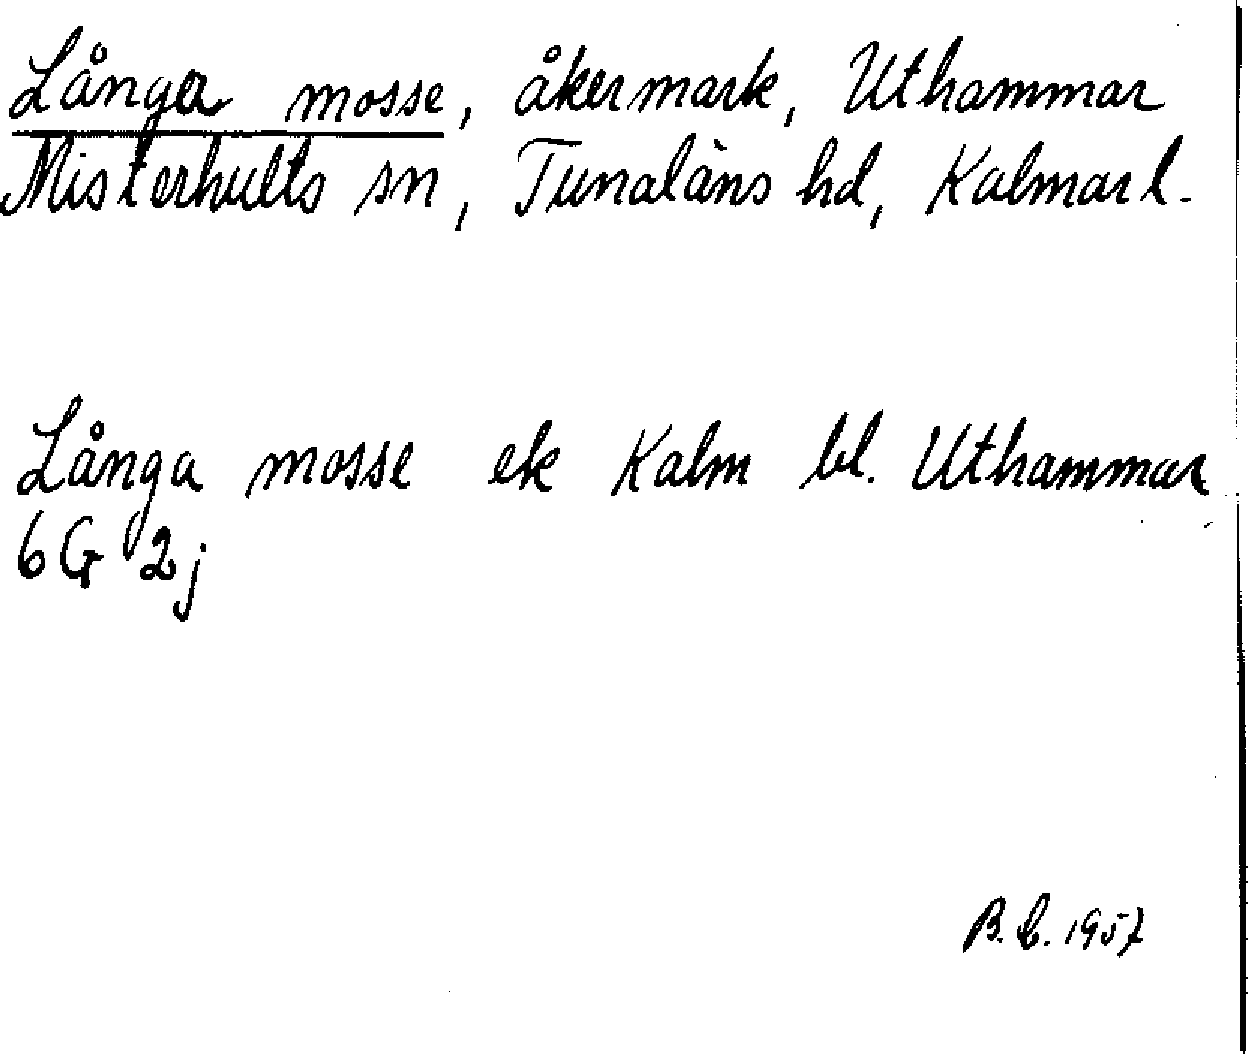 Långa mosse, åkermark, Uthammar
Misterhults sn, Tunaläns hd, Kalmar l.
Långa mosse ek Kalm bl. Uthammar
6G 2j
B.C. 1957